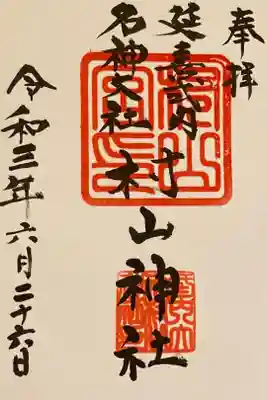 奉拝
延喜式内
名神大社
村山神社
令和三年六月二十六日